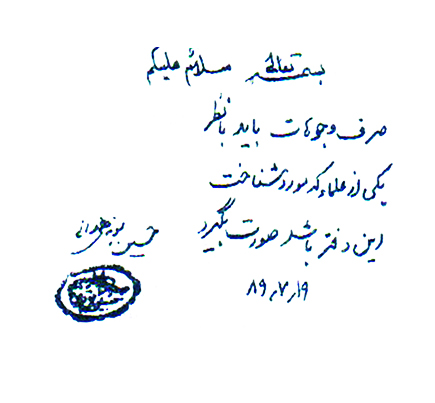 بسمه تعالی سلام علیکم
صرف وجوهات باید با نظر
یکی از علماء که مورد شناخت
این دفتر باشد صورت بگیرد
حسین نوری همدانی
۸۹٫۷٫۱۹